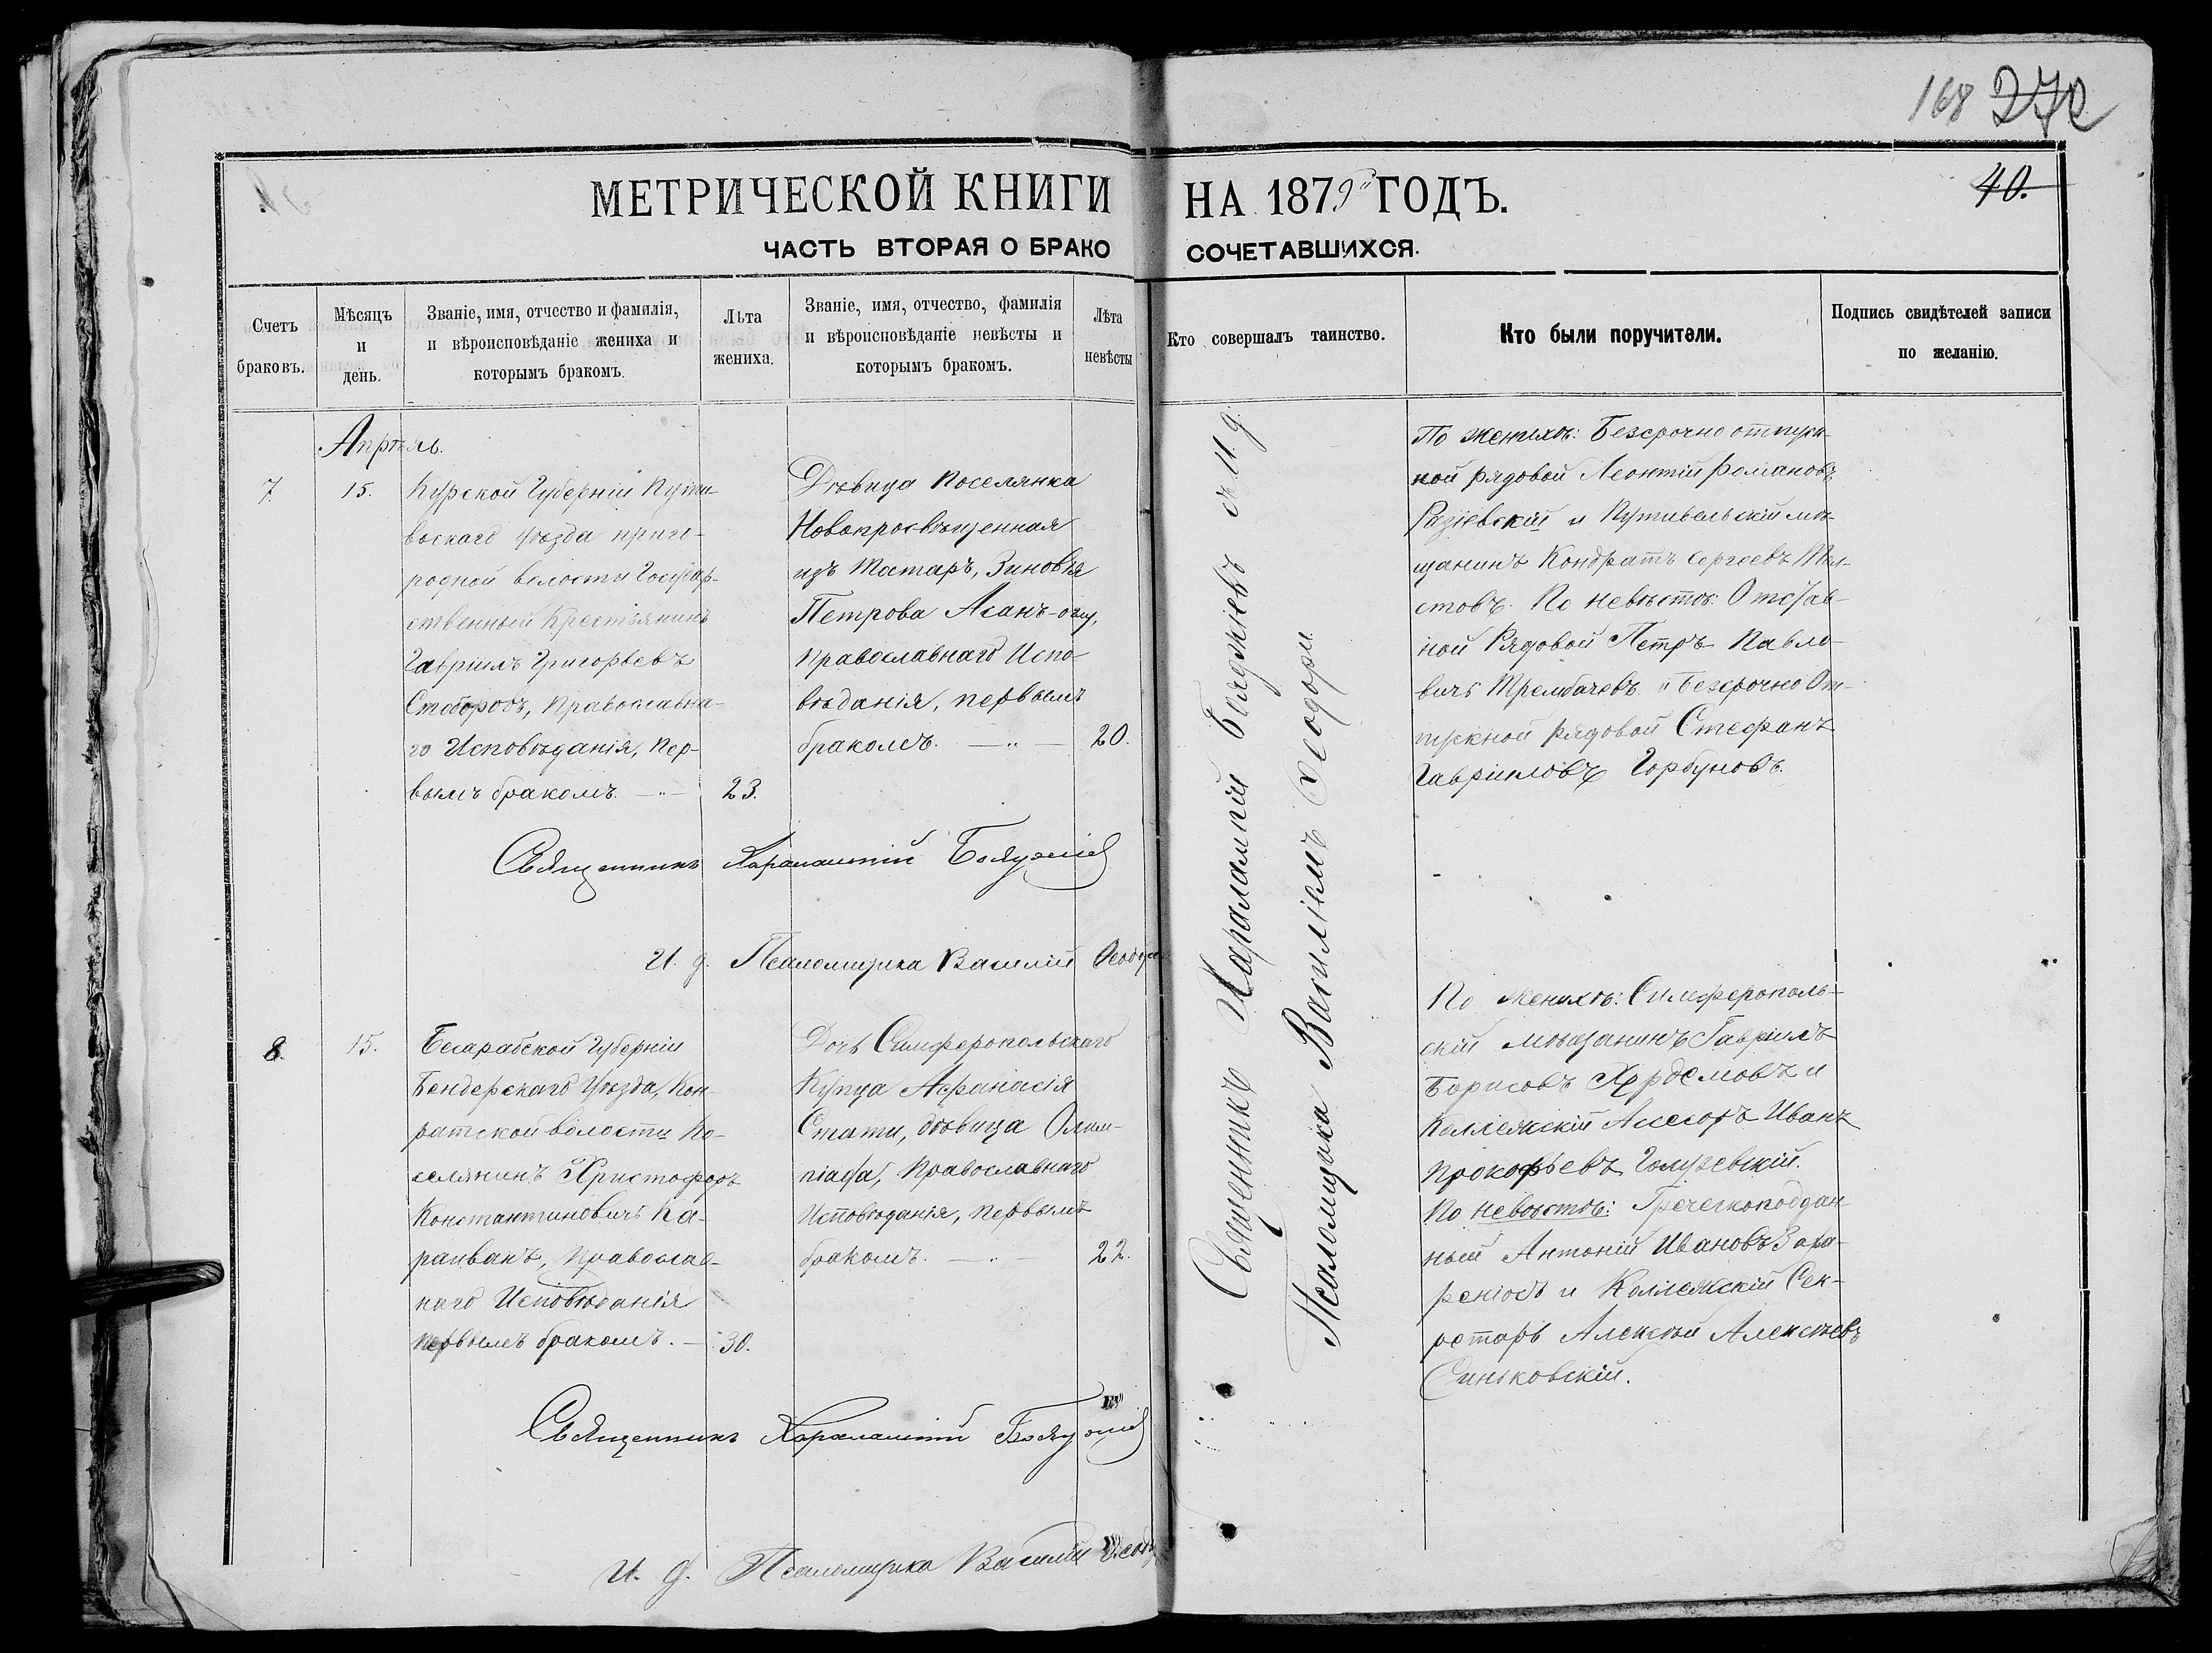 168 272
40.
МЕТРИЧЕСКОЙ КНИГИ НА 1879 ГОДЪ.
ЧАСТЬ ВТОРАЯ О БРАКОСОЧЕТАВШИХСЯ.
Счетъ браковъ.
Мѣсяцъ и день.
Званіе, имя, отчество и фамилія,
и вѣроисповѣданіе жениха и
которымъ бракомъ.
Лѣта жениха.
Званіе, имя, отчество, фамилія
и вѣроисповѣданіе невѣсты и
которымъ бракомъ.
Лѣта невѣсты
Кто совершалъ таинство.
Кто были поручители.
Подпись свидѣтелей записи
по желанію.
Апрѣль.
7
15.
Курской Губерніи Пути-
вскаго уѣзда приго-
родной волости Государ-
ственный Крестьянинъ
Гавріилъ Григорьевъ
православна-
го Исповѣданія, пер-
вымъ бракомъ.
23.
Дѣвица Поселянка
Новопросвѣщенная
изъ Татаръ, Зиновія
Петрова Асанъ-оглу,
православнаго Испо-
вѣданія, первымъ
бракомъ.
20.
Священникъ Харалампій
И. д. Псаломщика Василій
Священникъ Харалампій съ И. д.
Псаломщика Василіемъ Ѳеодори
По женихѣ: Безсрочно отпуск-
ной рядовой Леонтій Романовъ
и Путивльскій мѣ-
щанинъ Кондратъ Сергѣевъ
По невѣстѣ: Отстав-
ной Рядовой Петръ Павло-
вичъ и Безсрочно От-
пускной рядовой Стефанъ
Гавриловъ Горбуновъ.
8
15.
Бесарабской Губерніи
Бендерскаго Уѣзда, Ком-
ратской волости По-
селянинъ Христофоръ
Константиновичъ Ка-
раиванъ, Православ-
наго Исповѣданія
первымъ бракомъ.
30.
Дочь Симферопольскаго
Купца Афанасія
Стати, дѣвица Олим-
піада, Православнаго
Исповѣданія, первымъ
бракомъ.
22.
По женихѣ: Симферополь-
скій мѣщанинъ Гавріилъ
Борисовъ и
Коллежскій Асесоръ Иванъ
Прокофьевъ
По невѣстѣ: Греческоподдан
ный Антоній Ивановъ
и Коллежскій Сек-
ретарь Алексѣй Алексѣевъ
Синьковскій.
Священникъ Харалампій
И. д. Псаломщика Василій